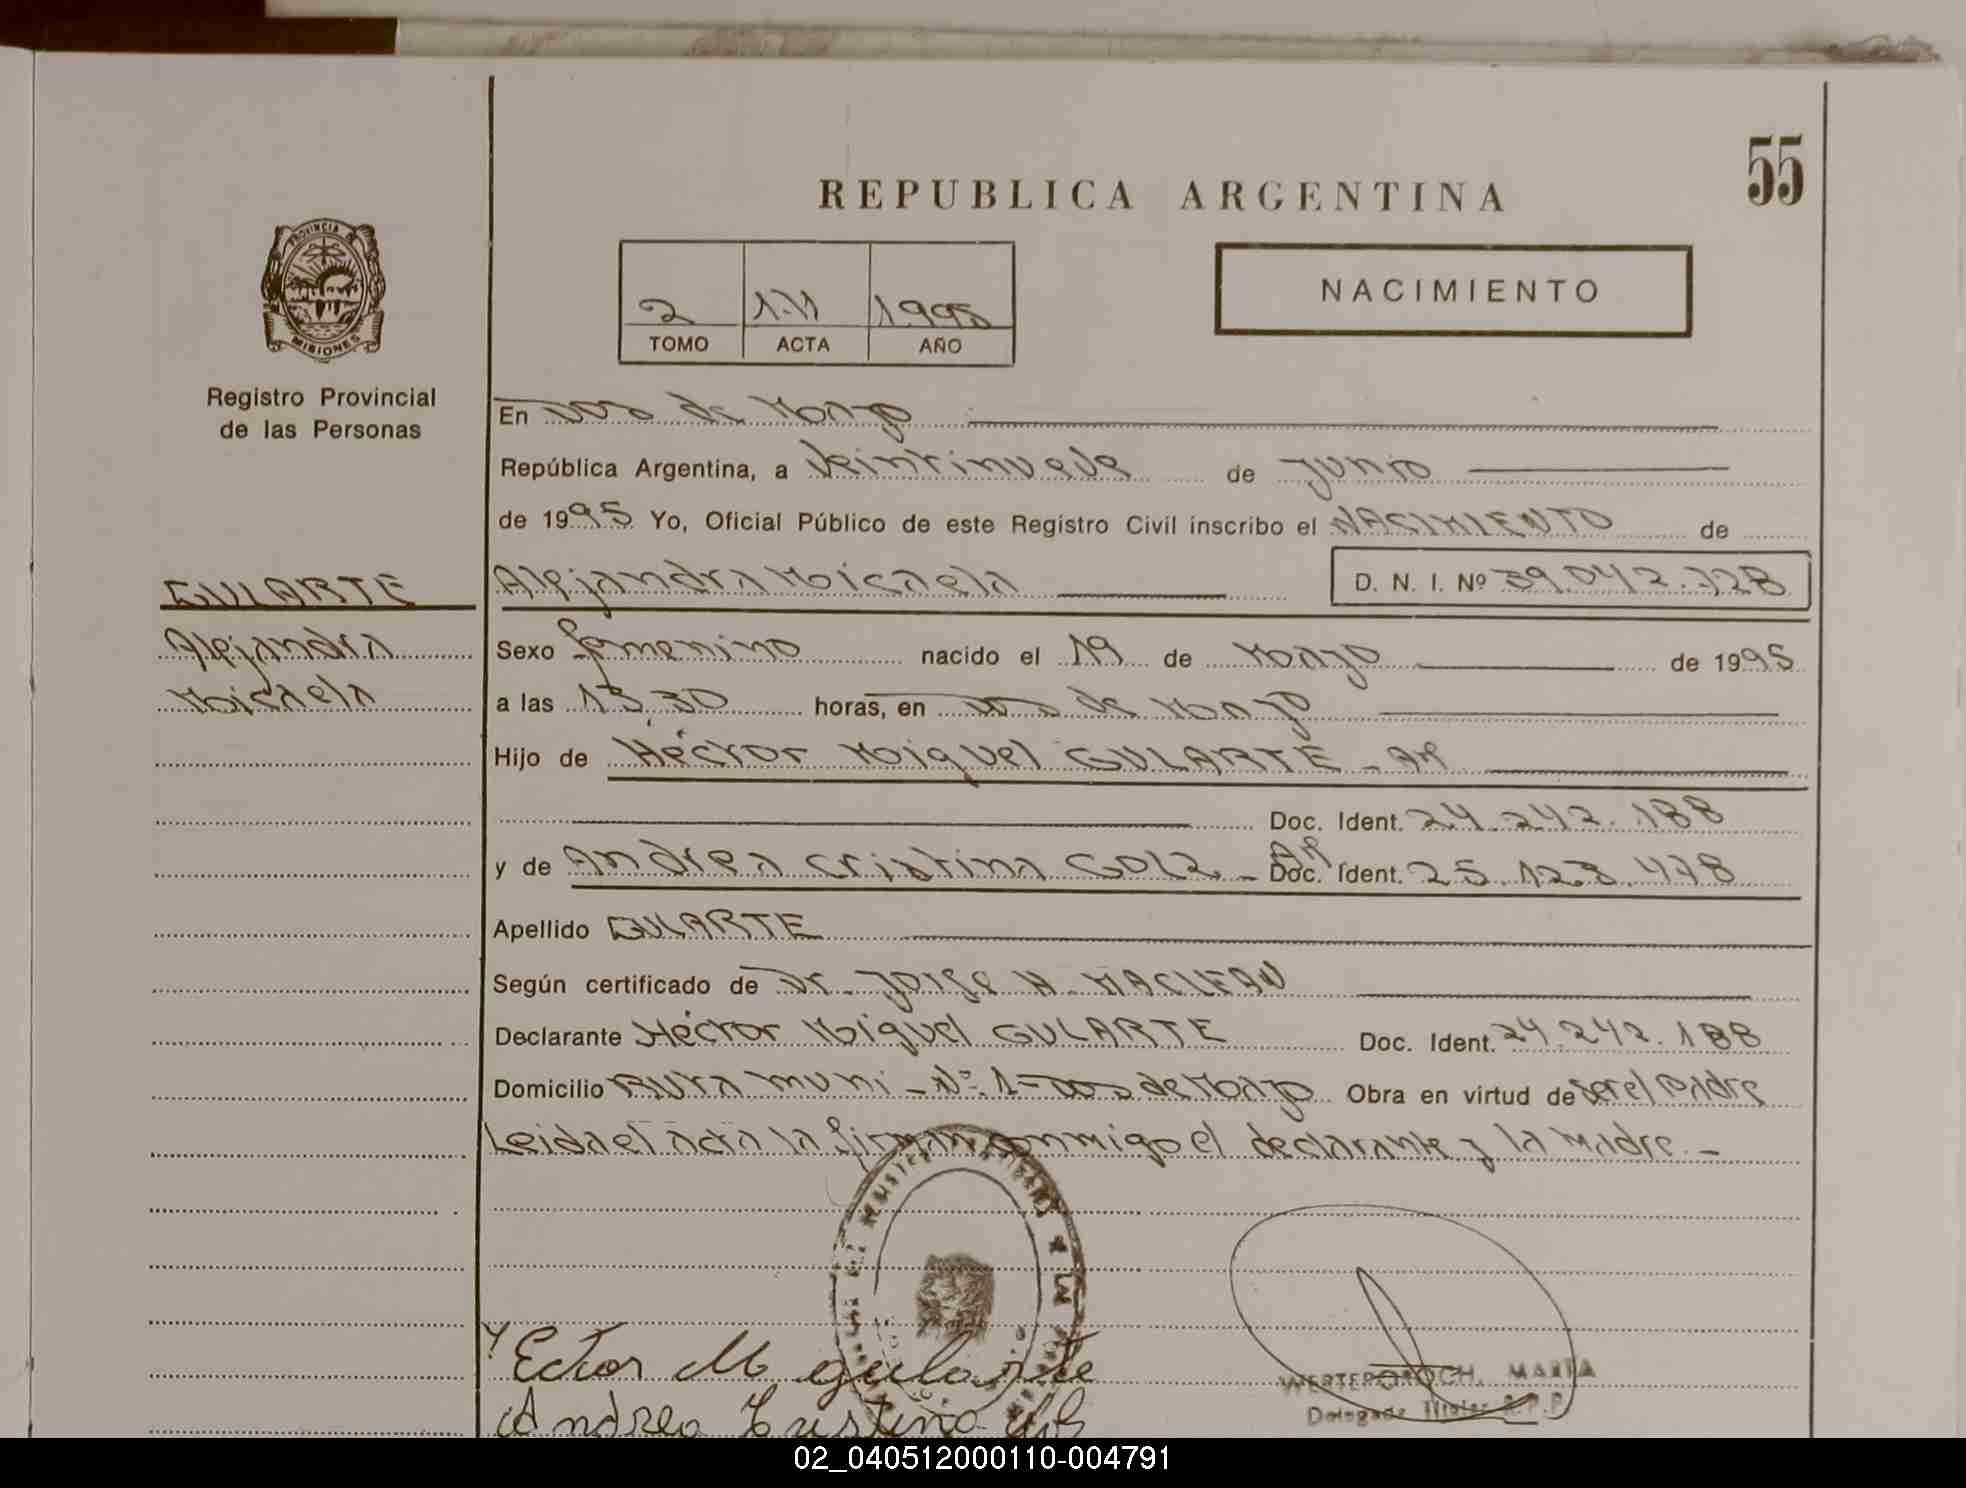 55
REPUBLICA ARGENTINA
PROVINCIA DE
MISIONES
Registro Provincial
de las Personas
2 111 1.995
TOMO ACTA AÑO
NACIMIENTO
En Dos de Mayo
República Argentina, a Veintinueve de junio
de 1995 Yo, Oficial Público de este Registro Civil inscribo el NACIMIENTO de
GULARTE
Alejandra Micaela D. N. I. Nº 39.042.728
Alejandra
Micaela
Sexo femenino nacido el 19 de Mayo de 1995
a las 13,30 horas, en Dos de Mayo
Hijo de Héctor Miguel GULARTE - AR
Doc. Ident. 24.242.188
y de Andrea Cristina GOLZ - AR Doc. Ident. 25.123.478
Apellido GULARTE
Según certificado de Dr. Jorge H. MACLEAN
Declarante Héctor Miguel GULARTE Doc. Ident. 24.242.188
Domicilio Ruta muni - Nº 1 - Dos de Mayo Obra en virtud de ser el padre
Leida el acta la firman conmigo el declarante y la madre. -
Ector M gularte
WERTEPOROCH, MARTA
Delegada Titular R.P.P.
Andrea Cristina
02_040512000110-004791